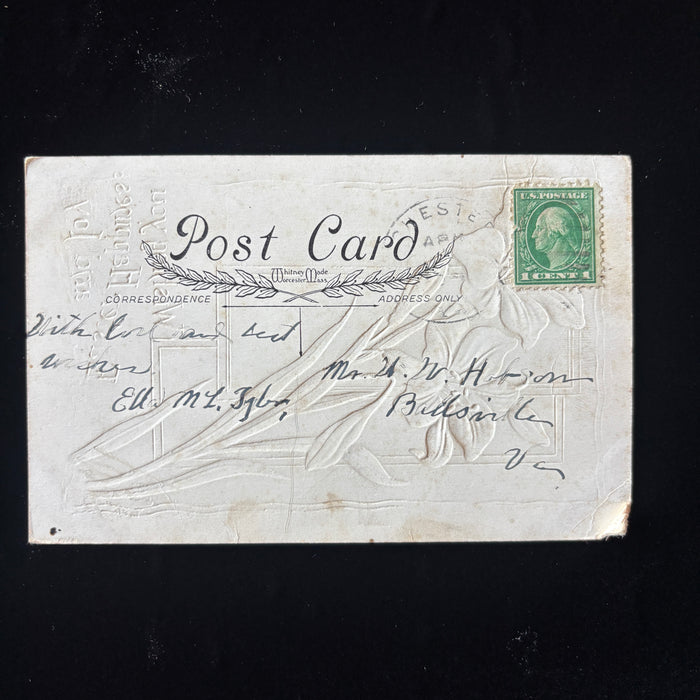 Post Card
Whitney Made
Worcester, Mass.
CORRESPONDENCE
ADDRESS ONLY
U.S. POSTAGE
1 CENT 1
APR
With love and best
wishes
Mr. H. W. Hobson
Ballsville
Va